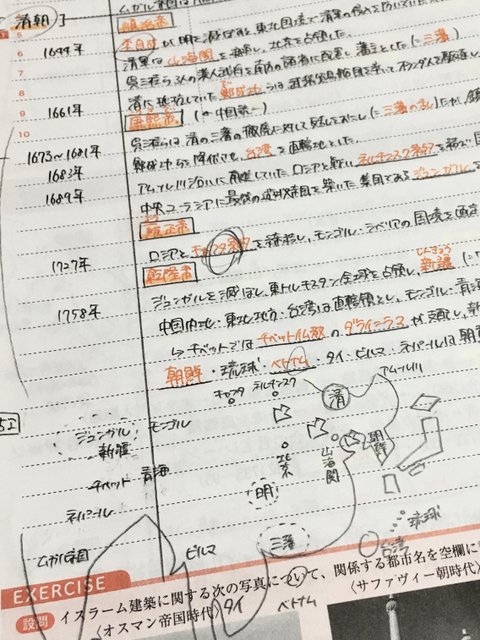 清朝
ムガル帝国は
順治帝
1644年 李自成が明を滅ぼすと、東北国境で清軍の侵入を防いでいた
清軍は山海関を開き、北京を占領した。
呉三桂ら3人の漢人武将を南方の諸省に配置し、藩王とした(=三藩)
清に抵抗していた鄭成功らは
康熙帝
1661年
1673〜1681年 呉三桂らは清の三藩の撤廃に対して反乱をおこし(=三藩の乱)
1683年 鄭成功らを降伏させ、台湾を直轄地とした。
1689年 アムール川沿いに南進していたロシアと戦い、ネルチンスク条約を結び
中央ユーラシアに最後の遊牧帝国を築いた、ジュンガルを
雍正帝
1727年 ロシアとキャフタ条約を締結し、モンゴル・シベリアの国境を画定
乾隆帝
1758年 ジュンガルを滅ぼし、東トルキスタン全域を占領し、新疆
しんきょう
中国内地・東北地方・台湾は直轄領とし、モンゴル・青海
→チベットではチベット仏教のダライ=ラマが支配し、新
朝鮮・琉球・ベトナム・タイ・ビルマ・ネパールは朝
キャフタ ネルチンスク 清 アムール川
ジュンガル モンゴル
新疆 北京 山海関 朝鮮
チベット 青海 明
ネパール 琉球
ムガル帝国 ビルマ 三藩 台湾
EXERCISE
設問 イスラーム建築に関する次の写真について、関係する都市名を空欄に
〈オスマン帝国時代〉 タイ ベトナム 〈サファヴィー朝時代〉